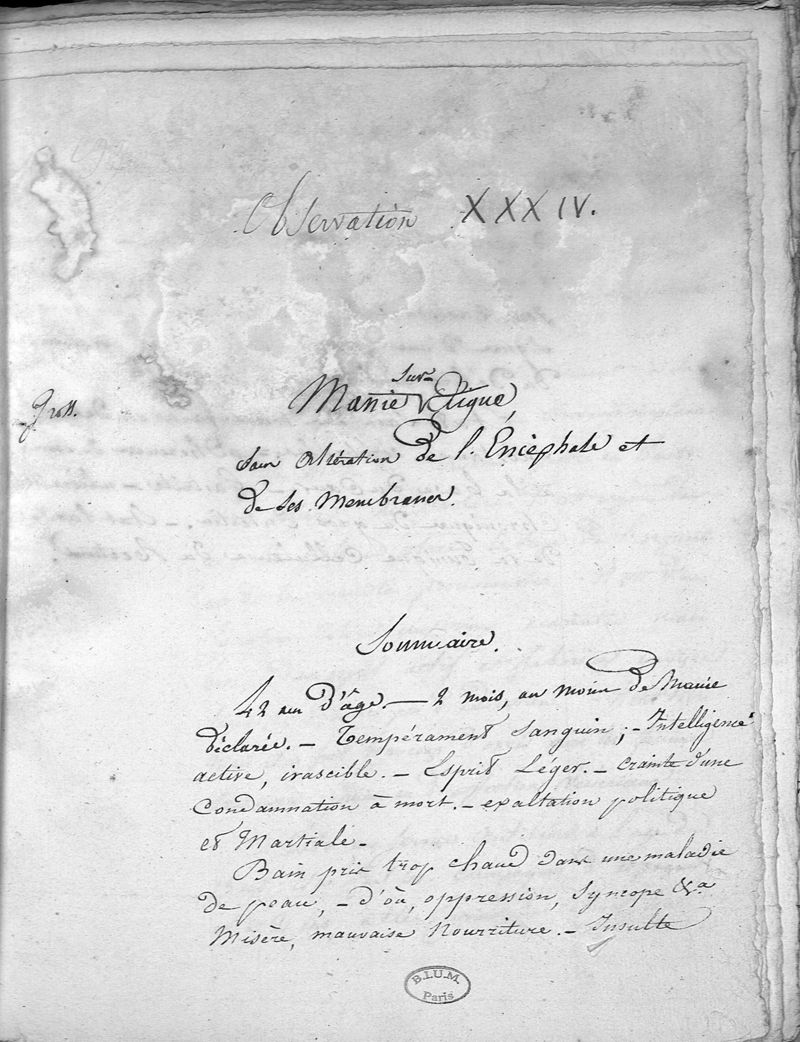 Observation XXXIV.
Manie sur-aigué
sans altération de l'Encéphale et
de ses Membranes.
Sommaire.
42 ans d'âge. — 2 mois, au moins de Manie
déclarée. — Tempérament Sanguin; - Intelligence
active, irascible. — Esprit Léger. — crainte d'une
Condamnation à mort. — exaltation politique
et Martiale -
Bain pris trop chaud dans une maladie
de peau, - d'où, oppression, Syncope &a
Misère, mauvaise Nourriture. — Insulte
B.I.U.M.
Paris